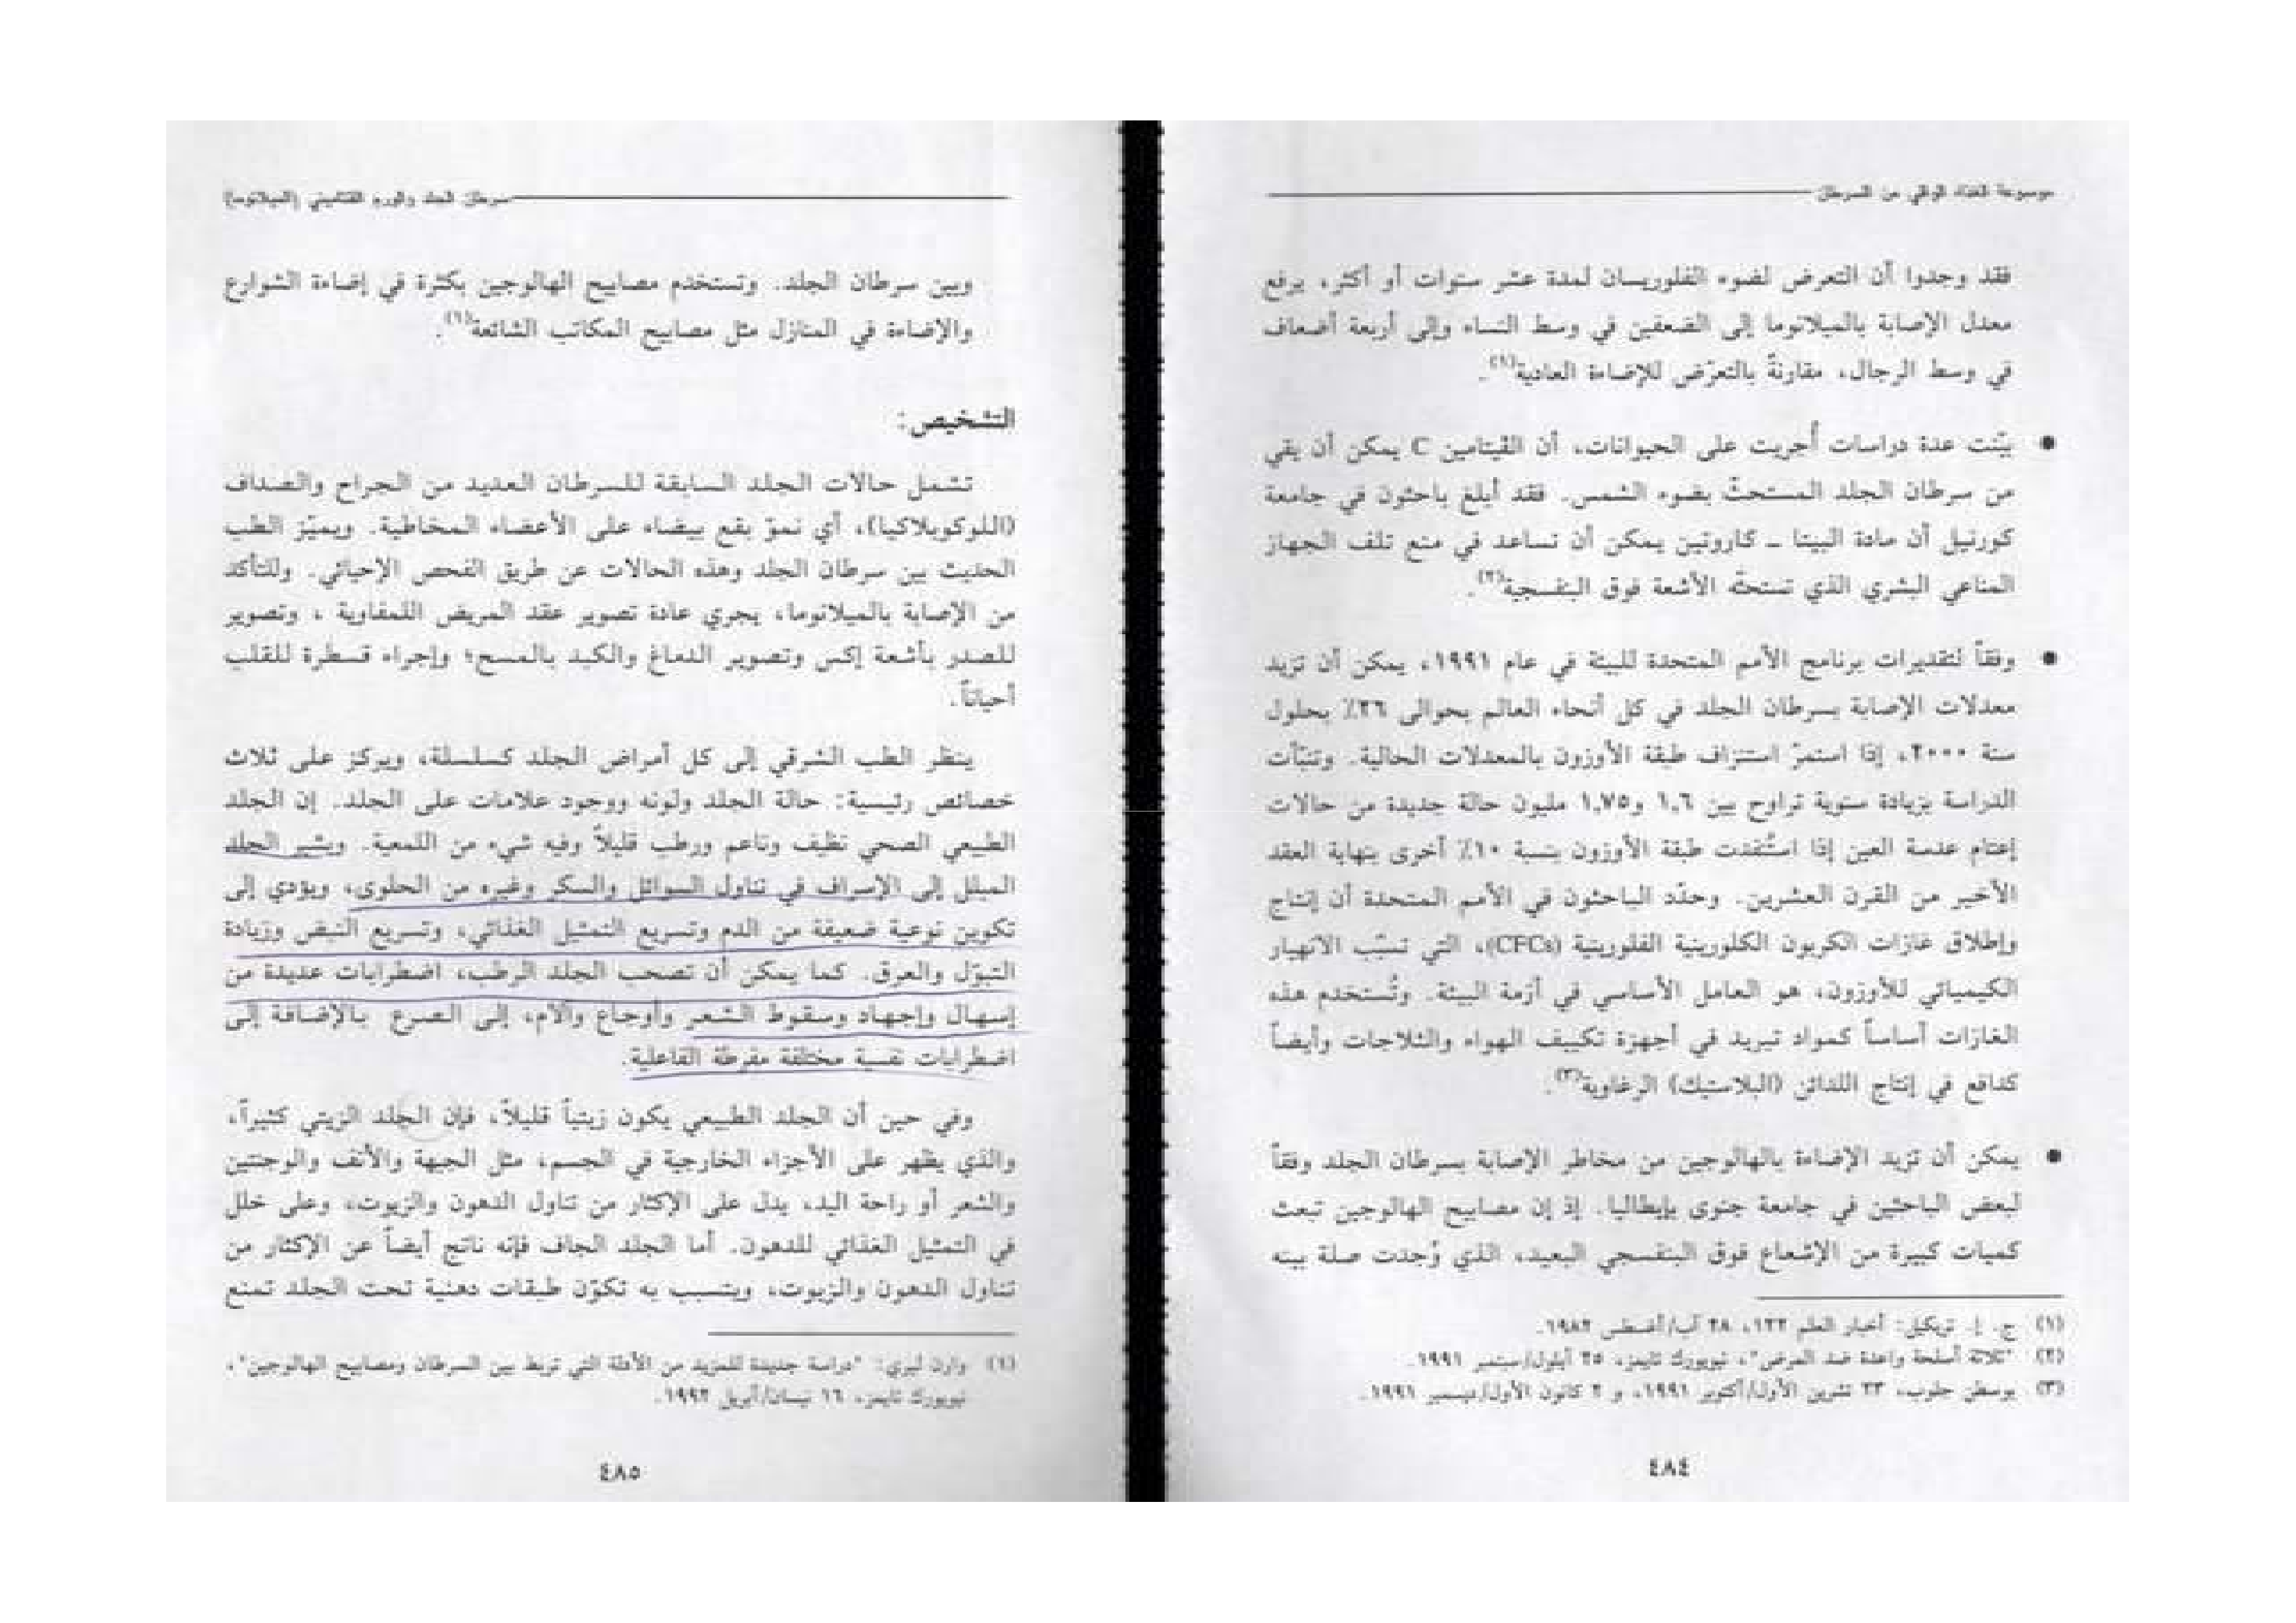 موسوعة الغذاء الواقي من السرطان
فقد وجدوا أن التعرض لضوء الفلوريسان لمدة عشر سنوات أو أكثر، يرفع
معدل الإصابة بالميلانوما إلى الضعفين في وسط النساء وإلى أربعة أضعاف
في وسط الرجال، مقارنةً بالتعرّض للإضاءة العادية(١).
● بيّنت عدة دراسات أُجريت على الحيوانات، أن الڤيتامين C يمكن أن يقي
من سرطان الجلد المستحثّ بضوء الشمس. فقد أبلغ باحثون في جامعة
كورنيل أن مادة البيتا ـ كاروتين يمكن أن تساعد في منع تلف الجهاز
المناعي البشري الذي تستحثّه الأشعة فوق البنفسجية(٢).
● وفقاً لتقديرات برنامج الأمم المتحدة للبيئة في عام ١٩٩١، يمكن أن تزيد
معدلات الإصابة بسرطان الجلد في كل أنحاء العالم بحوالى ٢٦٪ بحلول
سنة ٢٠٠٠، إذا استمرّ استنزاف طبقة الأوزون بالمعدلات الحالية. وتنبّأت
الدراسة بزيادة سنوية تراوح بين ١,٦ و١,٧٥ مليون حالة جديدة من حالات
إعتام عدسة العين إذا استُنفدت طبقة الأوزون بنسبة ١٠٪ أخرى بنهاية العقد
الأخير من القرن العشرين. وحدّد الباحثون في الأمم المتحدة أن إنتاج
وإطلاق غازات الكربون الكلورينية الفلورينية (CFCs)، التي تسبّب الانهيار
الكيميائي للأوزون، هو العامل الأساسي في أزمة البيئة. وتُستخدم هذه
الغازات أساساً كمواد تبريد في أجهزة تكييف الهواء والثلاجات وأيضاً
كدافع في إنتاج اللدائن (البلاستيك) الرغاوية(٣).
● يمكن أن تزيد الإضاءة بالهالوجين من مخاطر الإصابة بسرطان الجلد وفقاً
لبعض الباحثين في جامعة جنوى بإيطاليا. إذ إن مصابيح الهالوجين تبعث
كميات كبيرة من الإشعاع فوق البنفسجي البعيد، الذي وُجدت صلة بينه
(١) ج. إ. تريكيل: أخبار العلم ١٢٢، ٢٨ آب/أغسطس ١٩٨٢.
(٢) "ثلاثة أسلحة واعدة ضد المرض"، نيويورك تايمز، ٢٥ أيلول/سبتمبر ١٩٩١.
(٣) بوسطن جلوب، ٢٣ تشرين الأول/أكتوبر ١٩٩١، و ٢ كانون الأول/ديسمبر ١٩٩١.
٤٨٤
سرطان الجلد والورم القتاميني (الميلانوما)
وبين سرطان الجلد. وتستخدم مصابيح الهالوجين بكثرة في إضاءة الشوارع
والإضاءة في المنازل مثل مصابيح المكاتب الشائعة(١).
التشخيص:
تشمل حالات الجلد السابقة للسرطان العديد من الجراح والصداف
(اللوكوبلاكيا)، أي نموّ بقع بيضاء على الأعضاء المخاطية. ويميّز الطب
الحديث بين سرطان الجلد وهذه الحالات عن طريق الفحص الإحيائي. وللتأكد
من الإصابة بالميلانوما، يجري عادة تصوير عقد المريض اللمفاوية ، وتصوير
للصدر بأشعة إكس وتصوير الدماغ والكبد بالمسح؛ وإجراء قسطرة للقلب
أحياناً.
ينظر الطب الشرقي إلى كل أمراض الجلد كسلسلة، ويركز على ثلاث
خصائص رئيسية: حالة الجلد ولونه ووجود علامات على الجلد. إن الجلد
الطبيعي الصحي نظيف وناعم ورطب قليلاً وفيه شيء من اللمعية. ويشير الجلد
المبلل إلى الإسراف في تناول السوائل والسكر وغيره من الحلوى، ويؤدي إلى
تكوين نوعية ضعيفة من الدم وتسريع التمثيل الغذائي، وتسريع النبض وزيادة
التبوّل والعرق. كما يمكن أن تصحب الجلد الرطب، اضطرابات عديدة من
إسهال وإجهاد وسقوط الشعر وأوجاع وآلام، إلى الصرع بالإضافة إلى
اضطرابات نفسية مختلفة مفرطة الفاعلية.
وفي حين أن الجلد الطبيعي يكون زيتياً قليلاً، فإن الجلد الزيتي كثيراً،
والذي يظهر على الأجزاء الخارجية في الجسم، مثل الجبهة والأنف والوجنتين
والشعر أو راحة اليد، يدل على الإكثار من تناول الدهون والزيوت، وعلى خلل
في التمثيل الغذائي للدهون. أما الجلد الجاف فإنه ناتج أيضاً عن الإكثار من
تناول الدهون والزيوت، ويتسبب به تكوّن طبقات دهنية تحت الجلد تمنع
(١) وارن ليري: "دراسة جديدة للمزيد من الأدلة التي تربط بين السرطان ومصابيح الهالوجين"،
نيويورك تايمز، ١٦ نيسان/أبريل ١٩٩٢.
٤٨٥